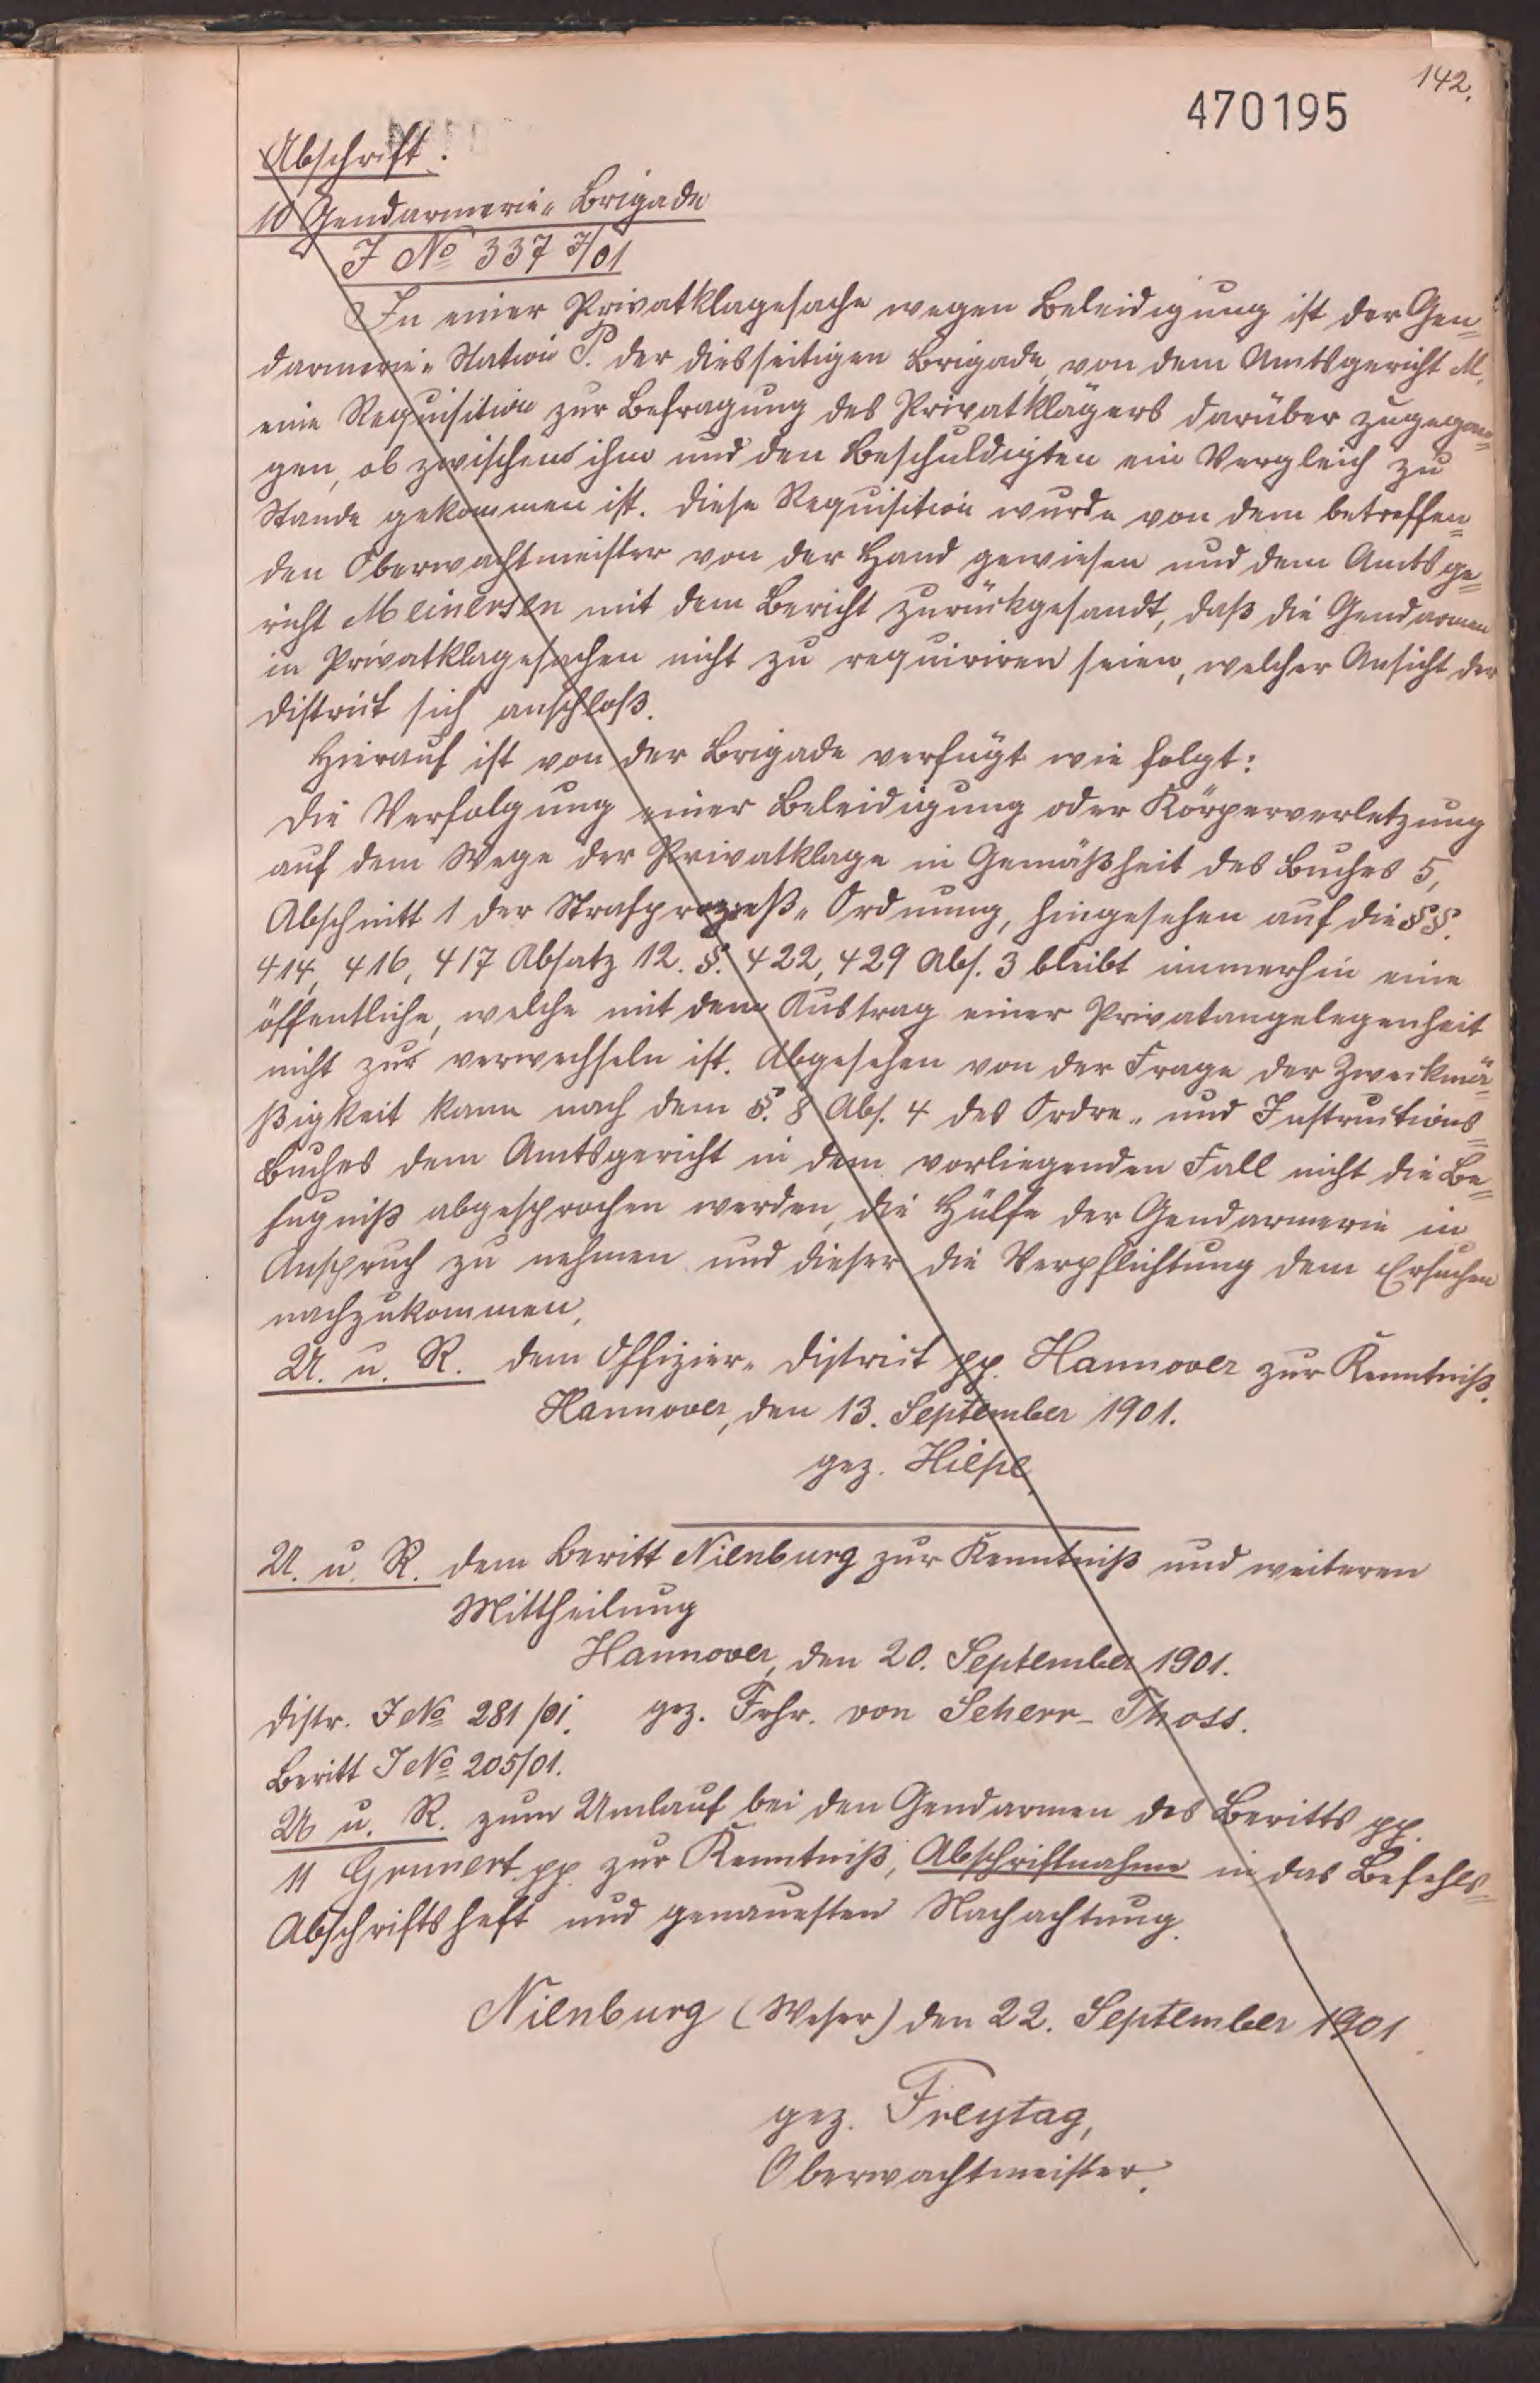 142.
470195
Abschrift.
10 Gendarmerie-Brigade
J No 337 I/01
In einer Privatklagesache wegen Beleidigung ist der Gen=
darmerie-Station P. der diesseitigen Brigade, von dem Amtsgericht M.
eine Requisition zur Befragung des Privatklägers darüber zugegan=
gen, ob zwischen ihm und den Beschuldigten ein Vergleich zu
Stande gekommen ist. Diese Requisition wurde von dem betreffen=
den Oberwachtmeister von der Hand gewiesen und dem Amtsge=
richt Meinersen mit dem Bericht zurückgesandt, daß die Gendarmen
in Privatklagesachen nicht zu requiriren seien, welcher Ansicht der
District sich anschloß.
Hierauf ist von der Brigade verfügt wie folgt:
Die Verfolgung einer Beleidigung oder Körperverletzung
auf dem Wege der Privatklage in Gemäßheit des Buches 5,
Abschnitt 1 der Strafprozeß-Ordnung, hingesehen auf die §§.
414, 416, 417 Absatz 12. §. 422, 429 Abs. 3 bleibt immerhin eine
öffentliche, welche mit dem Austrag einer Privatangelegenheit
nicht zur verwechseln ist. Abgesehen von der Frage der Zweckmä=
ßigkeit kann nach dem §. 8 Abs. 4 des Ordre- und Instructions=
Buches dem Amtsgericht in dem vorliegenden Fall nicht die Be=
fugniß abgesprochen werden, die Hülfe der Gendarmerie in
Anspruch zu nehmen und dieser die Verpflichtung dem Ersuchen
nachzukommen,
U. u. R. dem Offizier-District pp. Hannover zur Kenntniß.
Hannover, den 13. September 1901.
gez. Hiepe
U. u. R. dem Beritt Nienburg zur Kenntniß und weiteren
Mittheilung
Hannover, den 20. September 1901.
Distr. J No 281/01. gez. Frhr. von Scherr-Thoss.
Beritt J No 205/01.
U u. R. zum Umlauf bei den Gendarmen des Beritts pp.
11 Grunert pp. zur Kenntniß, Abschriftnahme in das Befehls=
Abschriftsheft und genauesten Nachachtung.
Nienburg (Weser) den 22. September 1901
gez. Freytag,
Oberwachtmeister.